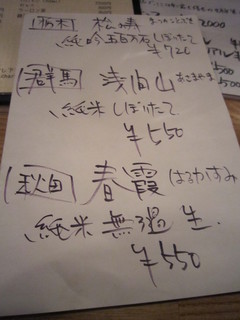 栃木 松の寿 まつのことぶき
純吟五百万石しぼりたて
¥720
群馬 浅間山 あさまやま
純米しぼりたて
¥550
秋田 春霞 はるかすみ
純米 無濾過 生.
¥550